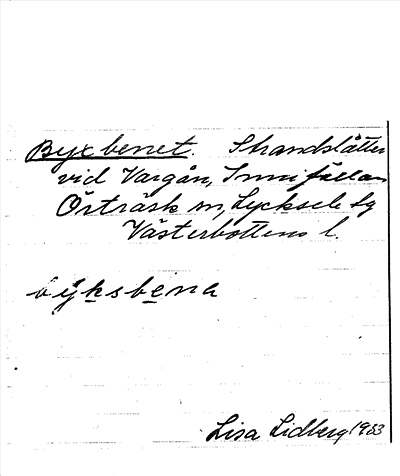 Byxbenet. Strandslåtter
vid Vargån, Inni fällan
Örträsk sn, Lycksele sg
Västerbottens l.
byksbena
Lisa Lidberg 1983